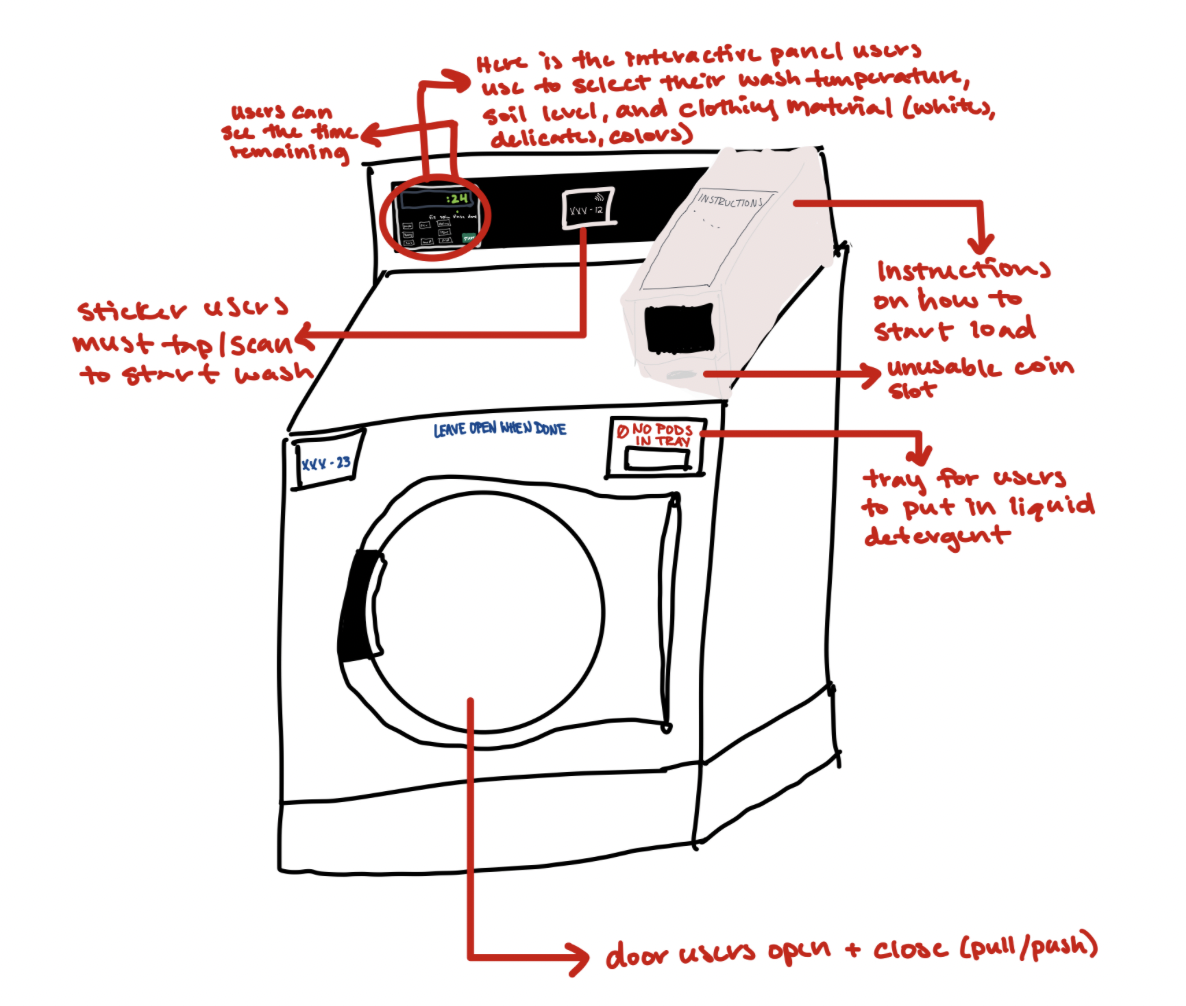 Here is the interactive panel users
use to select their wash temperature,
soil level, and clothing material (whites,
delicates, colors)
users can
see the time
remaining
:24
INSTRUCTIONS
XXX-12
Instructions
on how to
start load
sticker users
must tap/scan
to start wash
unusable coin
slot
LEAVE OPEN WHEN DONE
NO PODS
IN TRAY
XXX-23
tray for users
to put in liquid
detergent
door users open + close (pull/push)